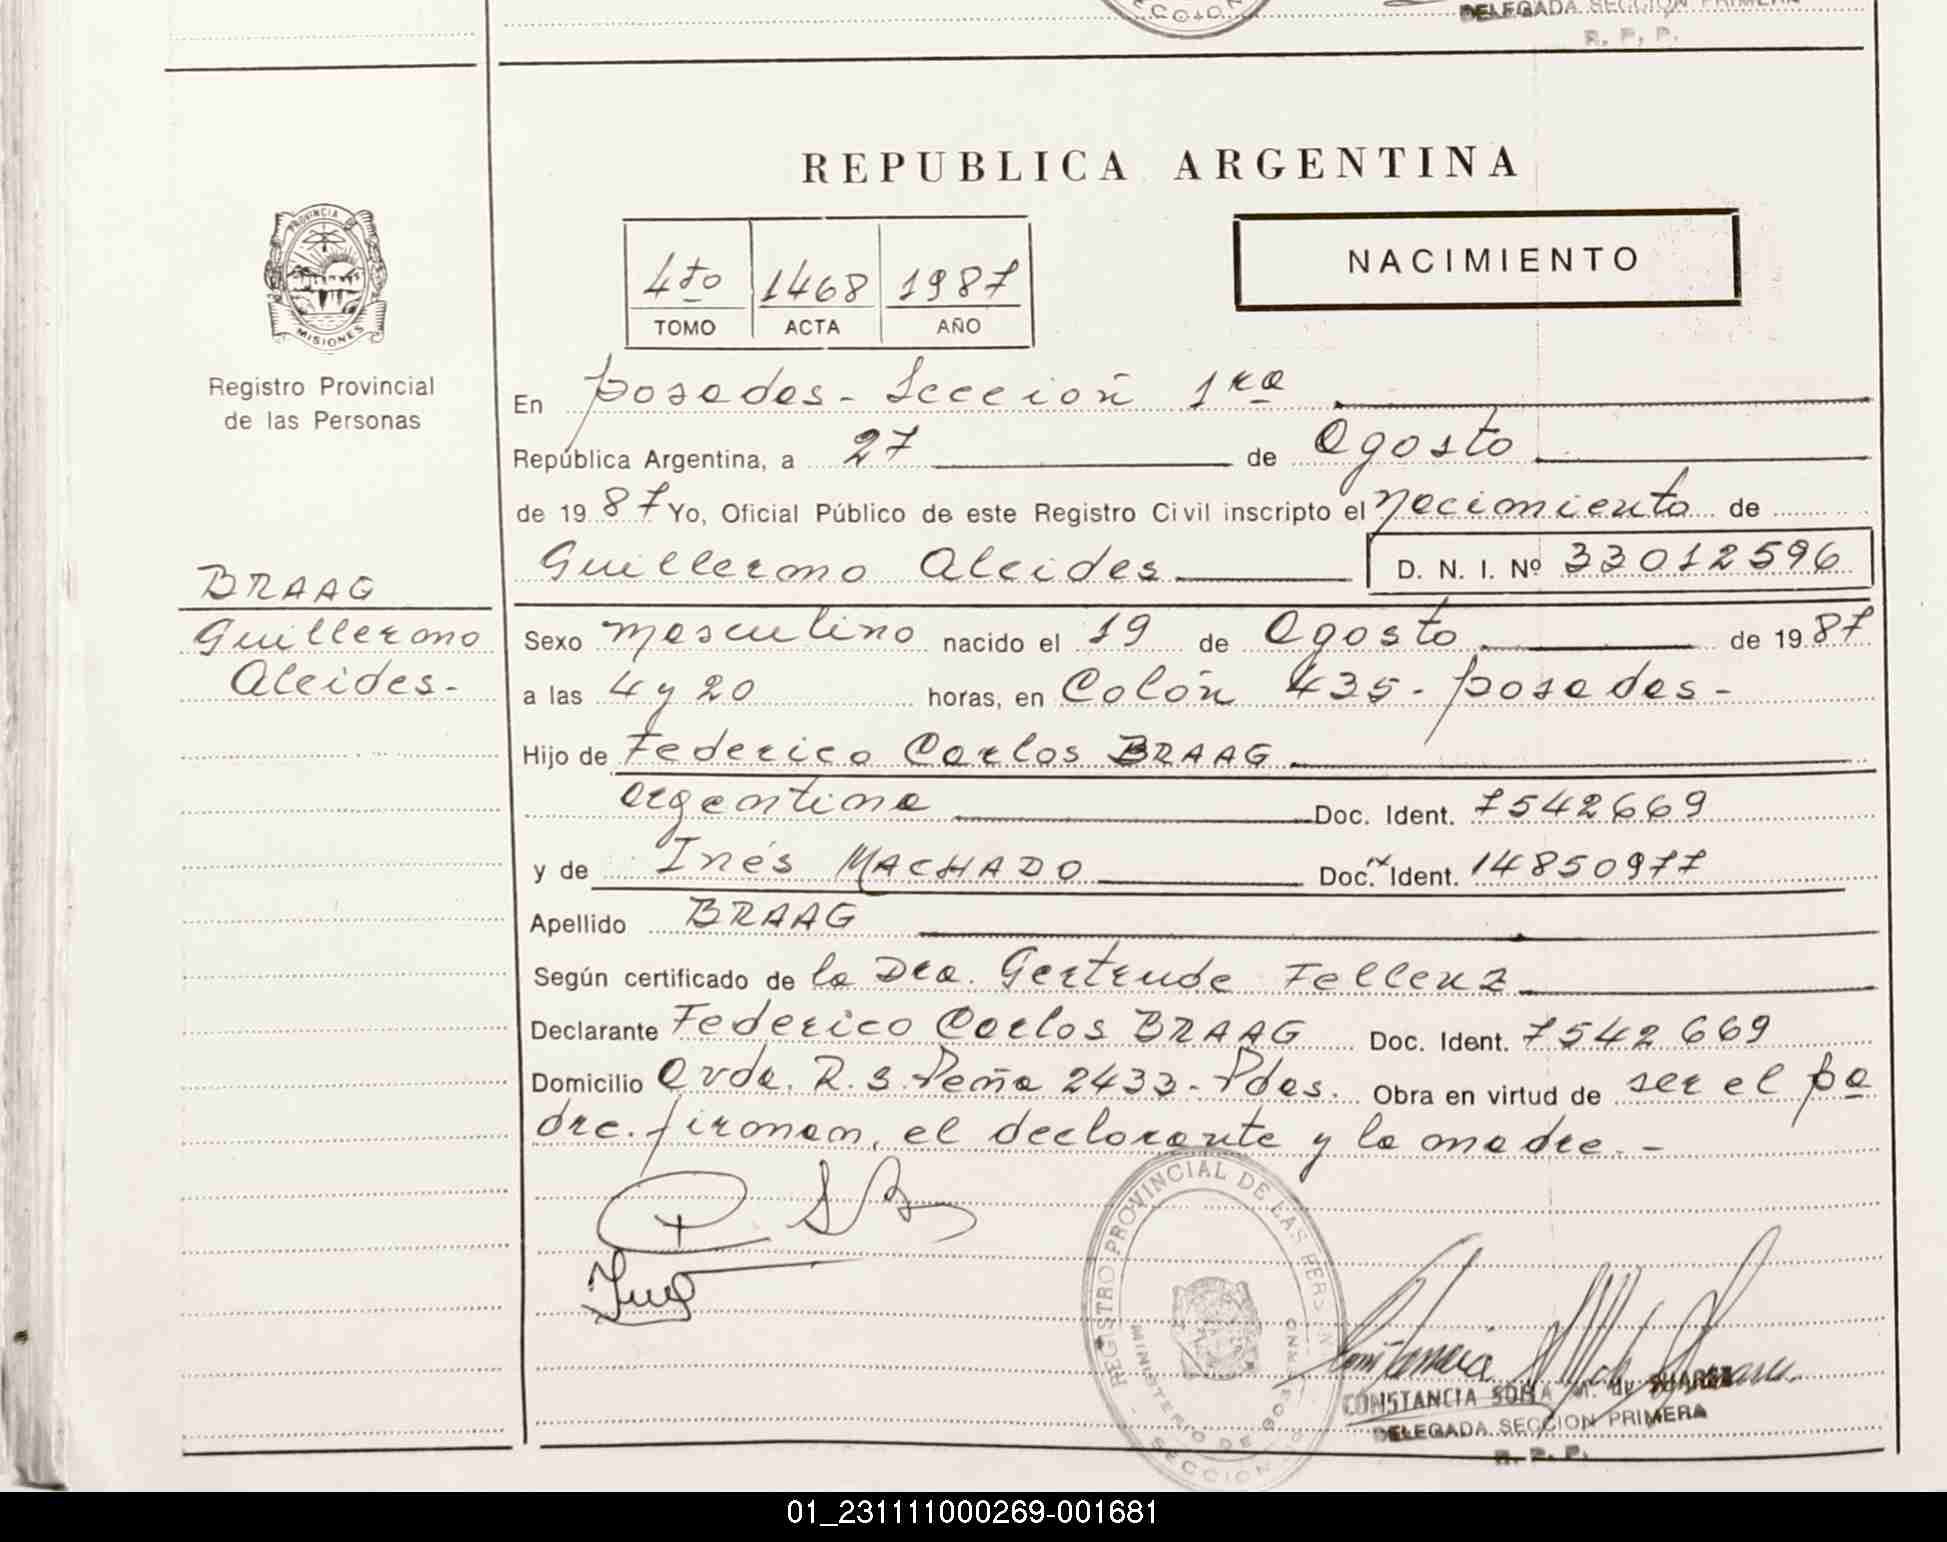 DELEGADA SECCION PRIMERA
R. P. P.
REPUBLICA ARGENTINA
PROVINCIA DE
MISIONES
Registro Provincial
de las Personas
4to 1468 1987
TOMO ACTA AÑO
NACIMIENTO
En Posadas - Sección 1ra
República Argentina, a 27 de Agosto
de 1987 Yo, Oficial Público de este Registro Civil inscripto el Nacimiento de
Guillermo Alcides D. N. I. Nº 33012596
BRAAG
Guillermo
Alcides-
Sexo masculino nacido el 19 de Agosto de 1987
a las 4 y 20 horas, en Colón 435 - Posadas -
Hijo de Federico Carlos BRAAG
argentina Doc. Ident. 7542669
y de Inés MACHADO Doc. Ident. 14850977
Apellido BRAAG
Según certificado de la Dra. Gertrude Fellenz
Declarante Federico Carlos BRAAG Doc. Ident. 7542669
Domicilio Avda. R. S. Peña 2433 - Pdas. Obra en virtud de ser el pa
dre. firman, el declarante y la madre. -
REGISTRO PROVINCIAL DE LAS PERS
MINISTERIO DE GOBIERNO
SECCION
CONSTANCIA SOFIA M. de SUAREZ
DELEGADA SECCION PRIMERA
R. P. P.
01_231111000269-001681